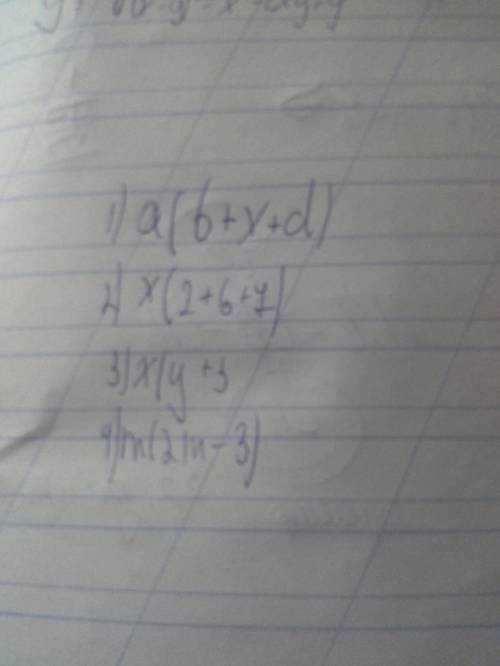 1) a(b+x+d)
2) x(2+6+7)
3) x(y+3
4) m(2m-3)